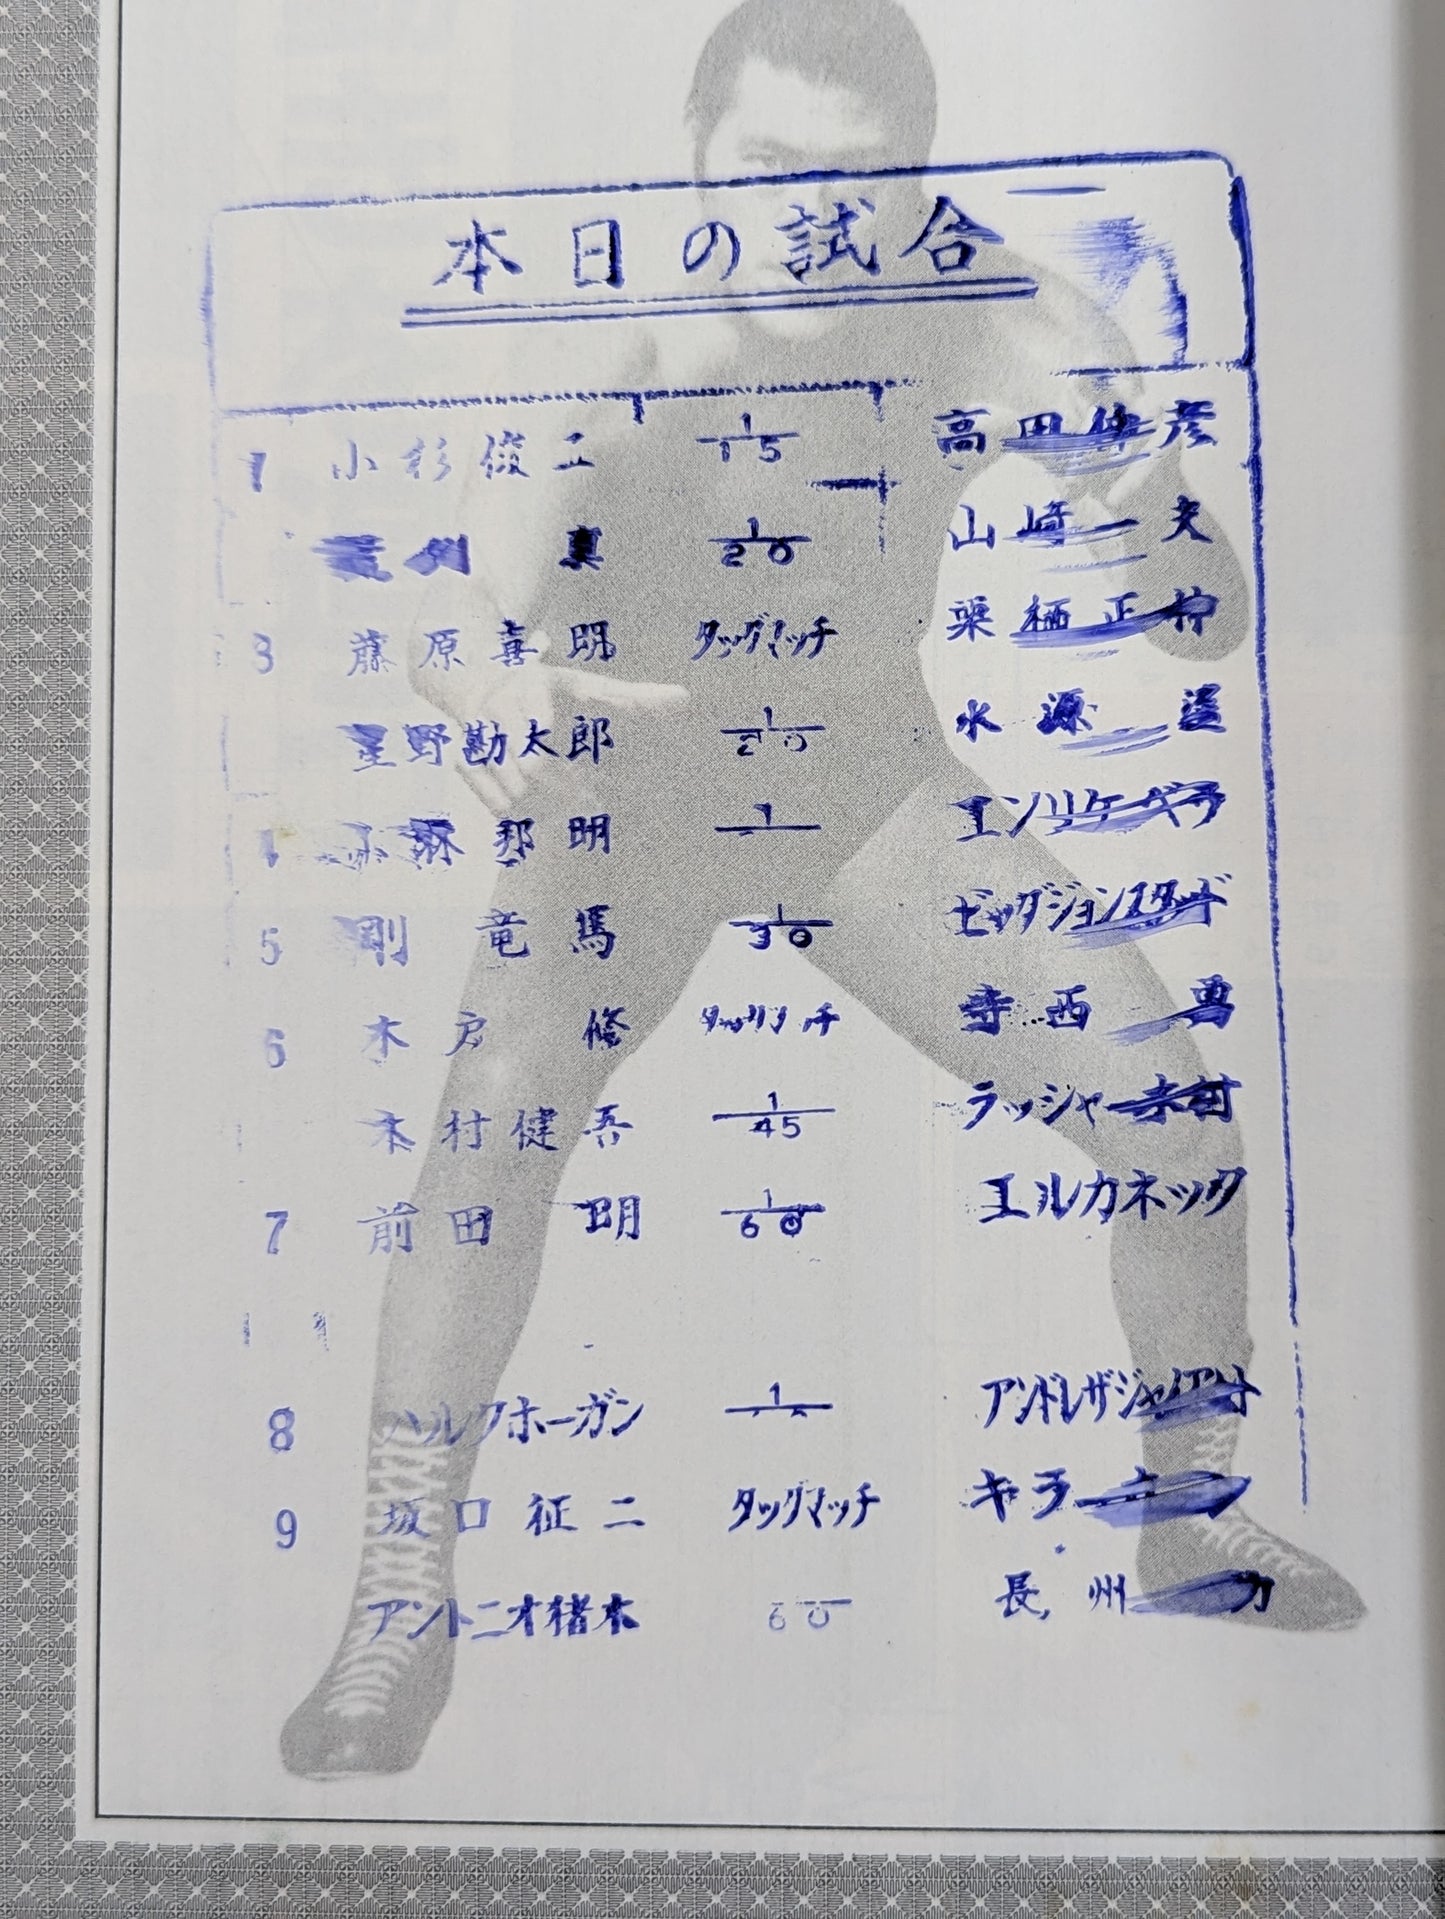 本日の試合
1 小杉俊二 1/15 高田伸彦
荒川 真 1/20 山崎一夫
3 藤原喜明 タッグマッチ 栗栖正伸
星野勘太郎 1/20 永源 遥
4 小林邦明 1/ エンリケベラ
5 剛 竜馬 1/30 ビッグジョンスタッド
6 木戸 修 タッグマッチ 寺西 勇
木村健吾 1/45 ラッシャー木村
7 前田 明 1/60 エルカネック
8 ハルクホーガン 1/ アンドレザジャイアント
9 坂口征二 タッグマッチ キラーカーン
アントニオ猪木 60 長州 力